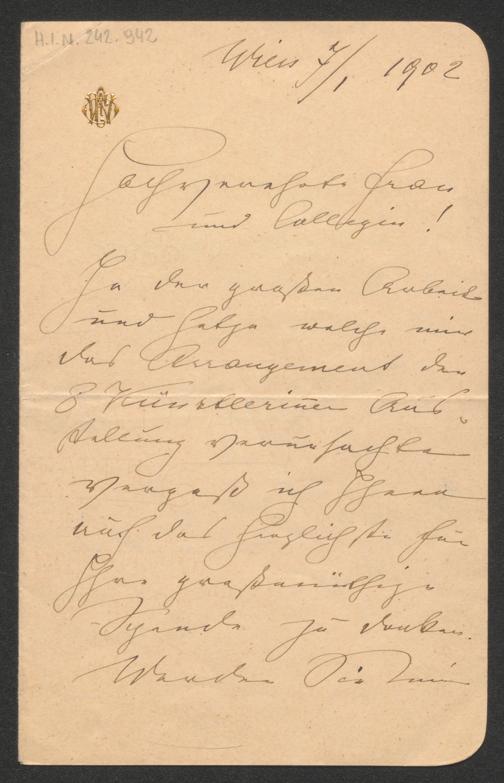 H.I.N. 242.942
Wien 7/1 1902
Hochverehrte Frau
und Collegin!
In der großen Arbeit
und Hetze welche mir
das Arrangement der
8 Künstlerinen Aus-
stellung verursachte
vergaß ich Ihnen
auf das Herzlichste für
Ihre großmüthige
Spende zu danken.
Werden Sie mir